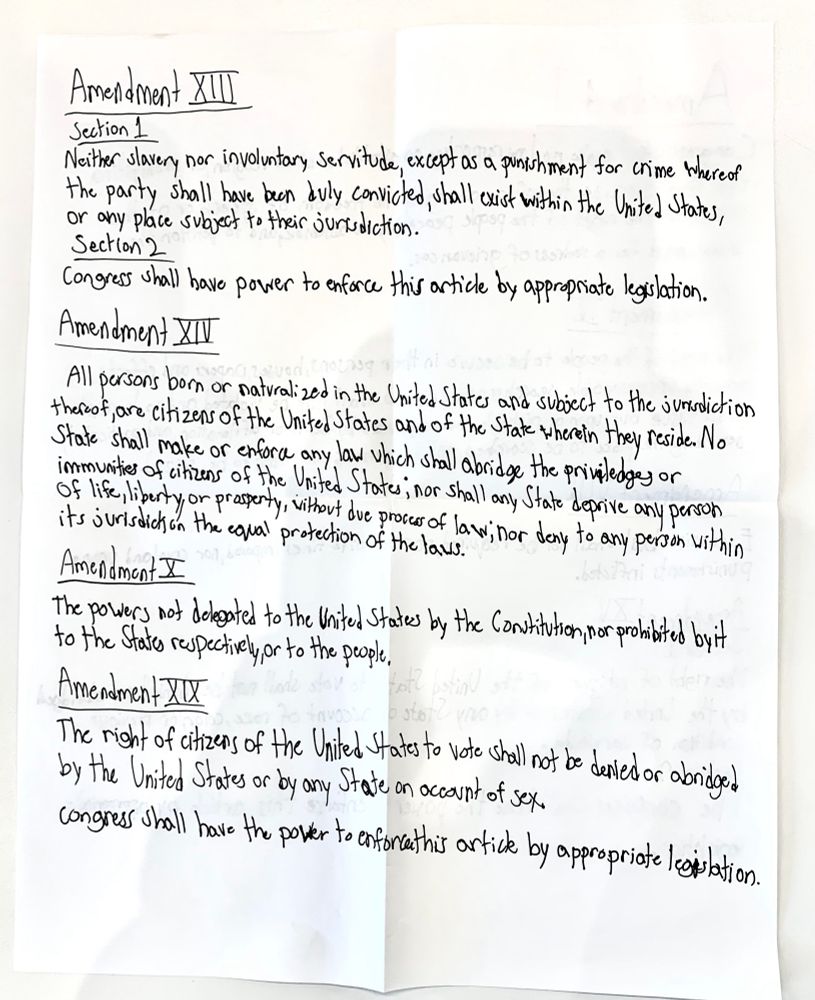 Amendment XIII
Section 1
Neither slavery nor involuntary servitude, except as a punishment for crime whereof
the party shall have been duly convicted, shall exist within the United States,
or any place subject to their jurisdiction.
Section 2
Congress shall have power to enforce this article by appropriate legislation.
Amendment XIV
All persons born or naturalized in the United States and subject to the jurisdiction
thereof, are citizens of the United States and of the State wherein they reside. No
State shall make or enforce any law which shall abridge the priviledges or
immunities of citizens of the United States; nor shall any State deprive any person
of life, liberty, or prosperty, without due process of law; nor deny to any person within
its jurisdiction the equal protection of the laws.
Amendment X
The powers not delegated to the United States by the Constitution, nor prohibited by it
to the States respectively, or to the people.
Amendment XIX
The right of citizens of the United States to vote shall not be denied or abridged
by the United States or by any State on account of sex.
Congress shall have the power to enforce this article by appropriate legislation.